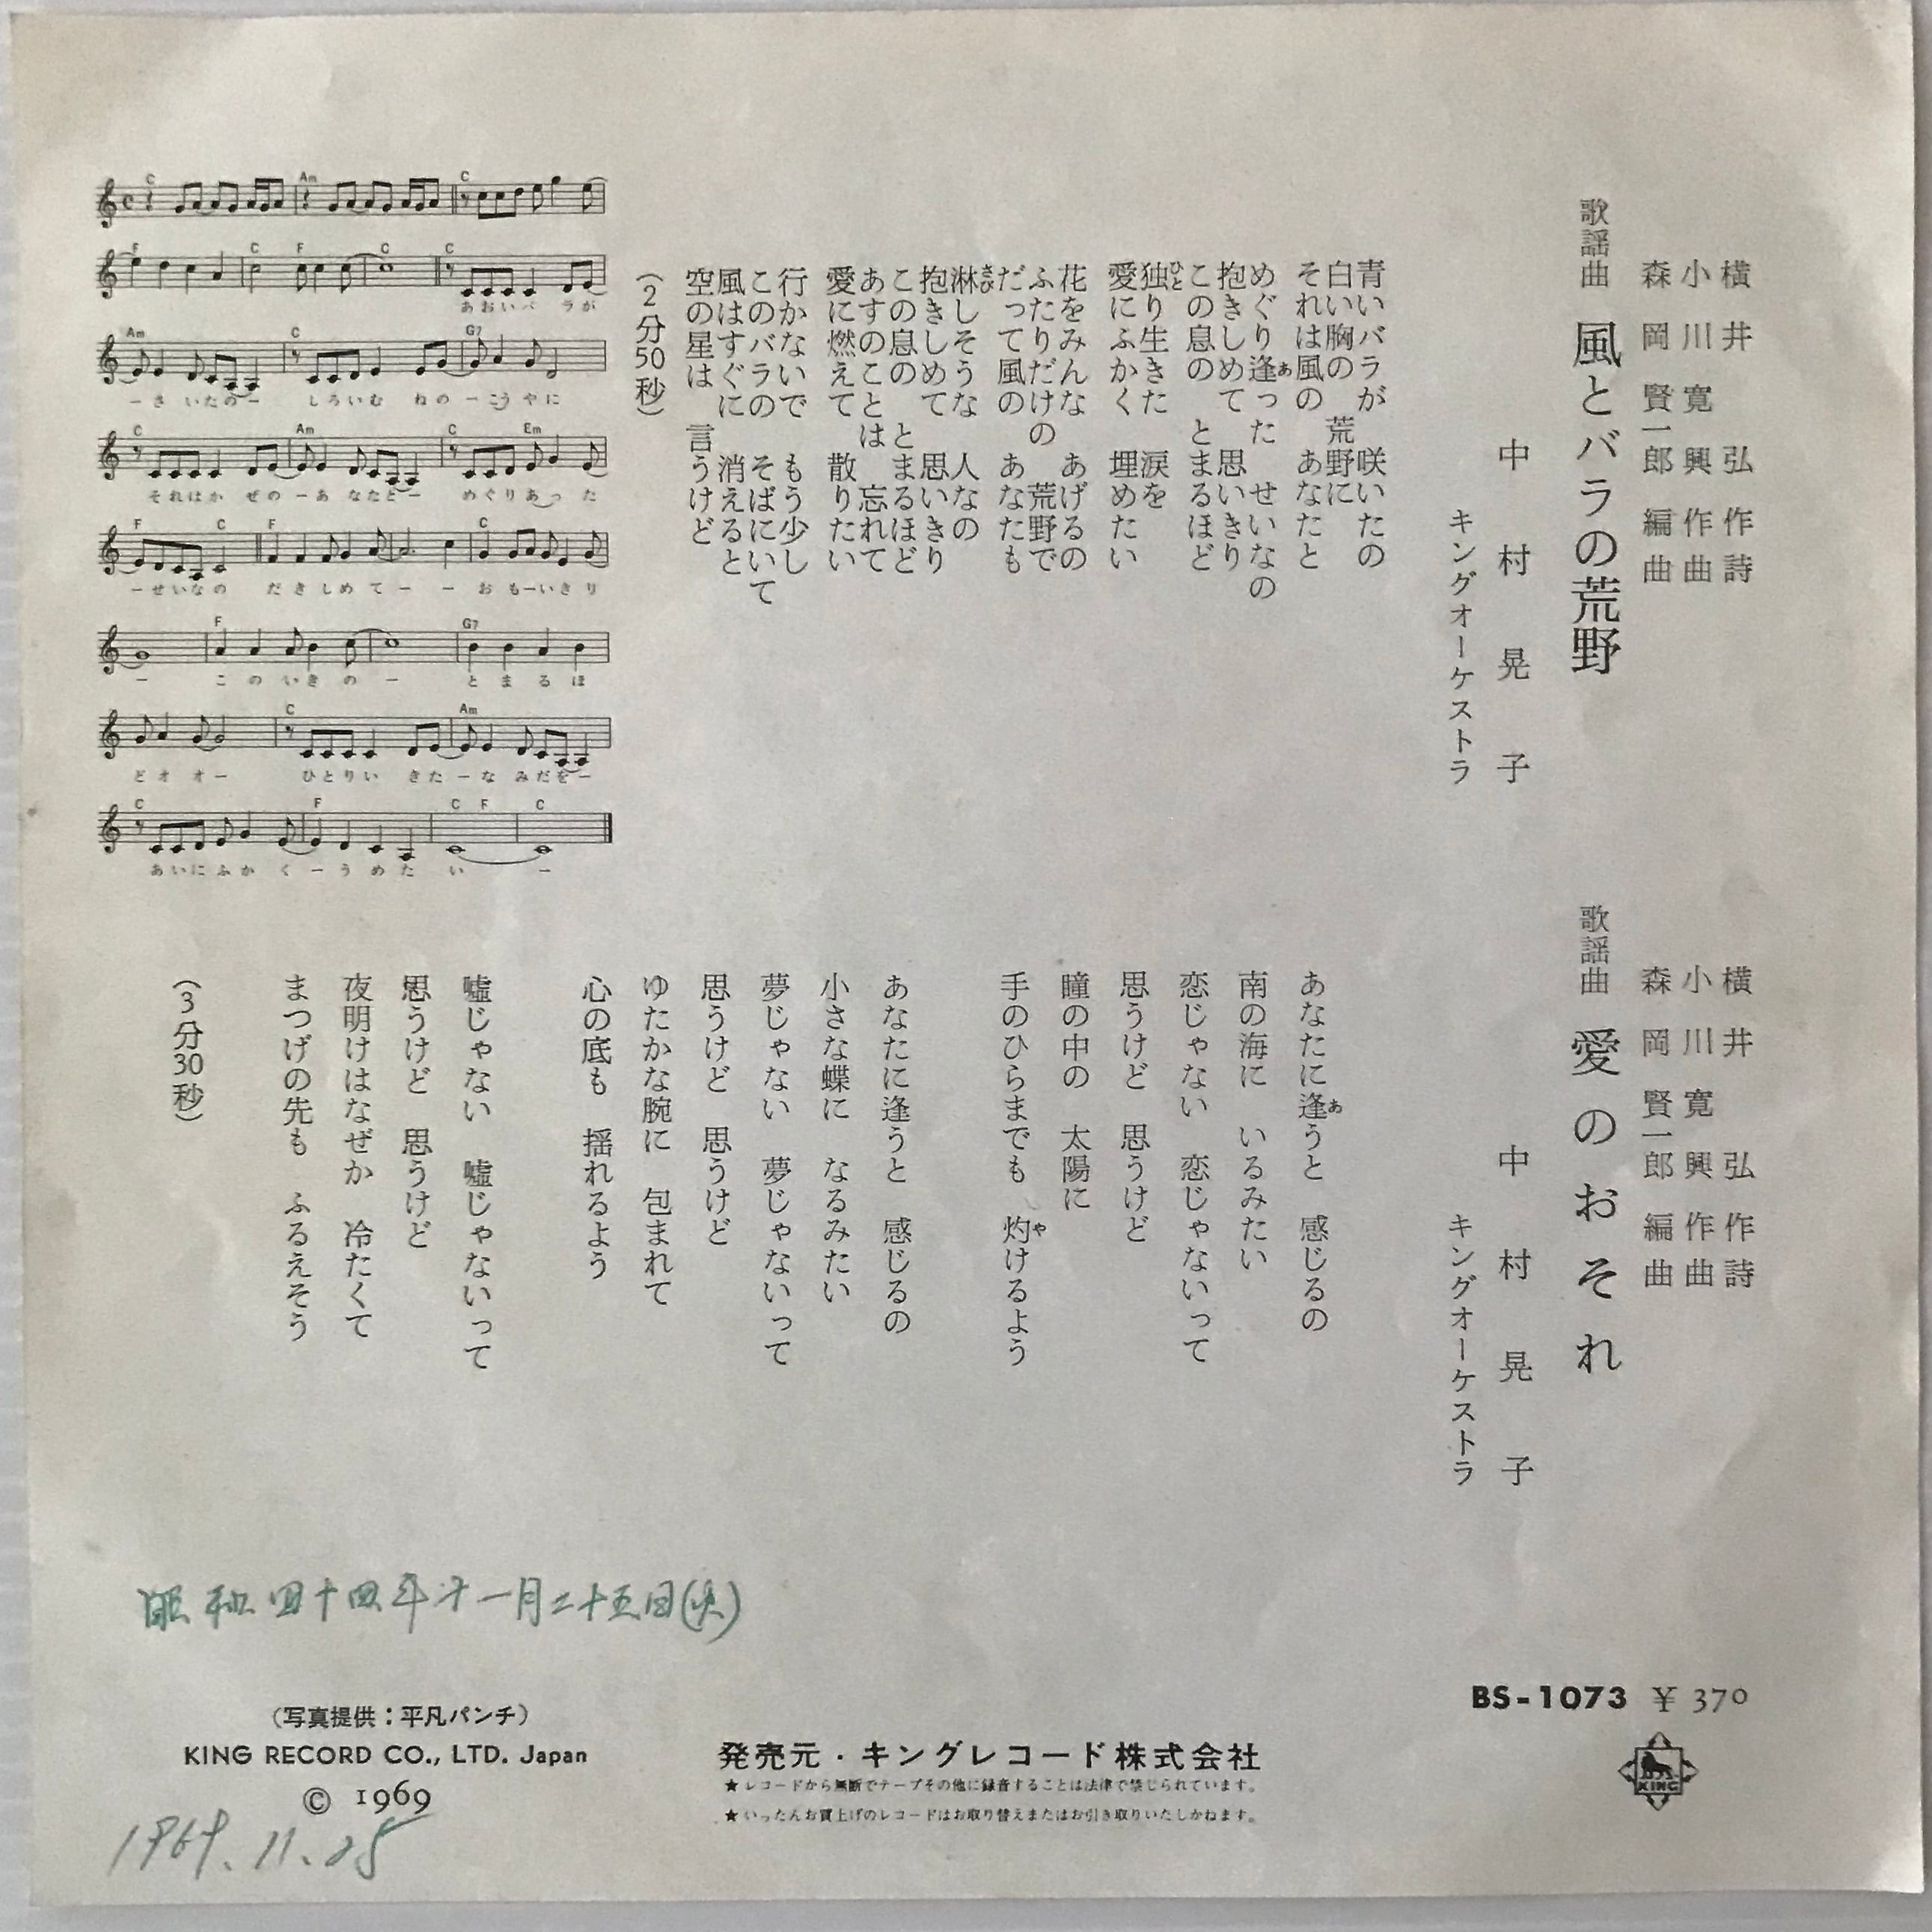 歌謡曲 風とバラの荒野
横井 弘 作詩
小川寛興 作曲
森岡賢一郎 編曲
中村晃子
キングオーケストラ
青いバラが 咲いたの
白い胸の 荒野に
それは風の あなたと
めぐり逢った せいなの
あ
抱きしめて 思いきり
この息の とまるほど
独り生きた 涙を
ひと
愛にふかく 埋めたい
花をみんな あげるの
ふたりだけの 荒野で
だって風の あなたも
淋しそうな 人なの
さび
抱きしめて 思いきり
この息の とまるほど
あすのことは 忘れて
愛に燃えて 散りたい
行かないで もう少し
このバラの そばにいて
風はすぐに 消えると
空の星は 言うけど
(2分50秒)
C Am C
F C F C C
あおいバ ラが
Am C G7
ーさ いたのー しろいむ ねのーこう やに
C Am C Em
それはか ぜのーあ なたとー めぐりあった
F C F C
ーせいなの だきしめてー ー おもーいきり
F G7
ー このいきのー とまるほ
C Am
どオオー ひとりい きたーな みだをー
C F C F C
あいにふか くーうめた い ー
歌謡曲 愛のおそれ
横井 弘 作詩
小川寛興 作曲
森岡賢一郎 編曲
中村晃子
キングオーケストラ
あなたに逢うと 感じるの
あ
南の海に いるみたい
恋じゃない 恋じゃないって
思うけど 思うけど
瞳の中の 太陽に
手のひらまでも 灼けるよう
や
あなたに逢うと 感じるの
小さな蝶に なるみたい
夢じゃない 夢じゃないって
思うけど 思うけど
ゆたかな腕に 包まれて
心の底も 揺れるよう
嘘じゃない 嘘じゃないって
思うけど 思うけど
夜明けはなぜか 冷たくて
まつげの先も ふるえそう
(3分30秒)
昭和四十四年十一月二十五日(火)
BS-1073 ¥ 370
KING
(写真提供:平凡パンチ)
KING RECORD CO., LTD. Japan
© 1969
発売元・キングレコード株式会社
★レコードから無断でテープその他に録音することは法律で禁じられています。
★いったんお買上げのレコードはお取り替えまたはお引き取りいたしかねます。
1969.11.25